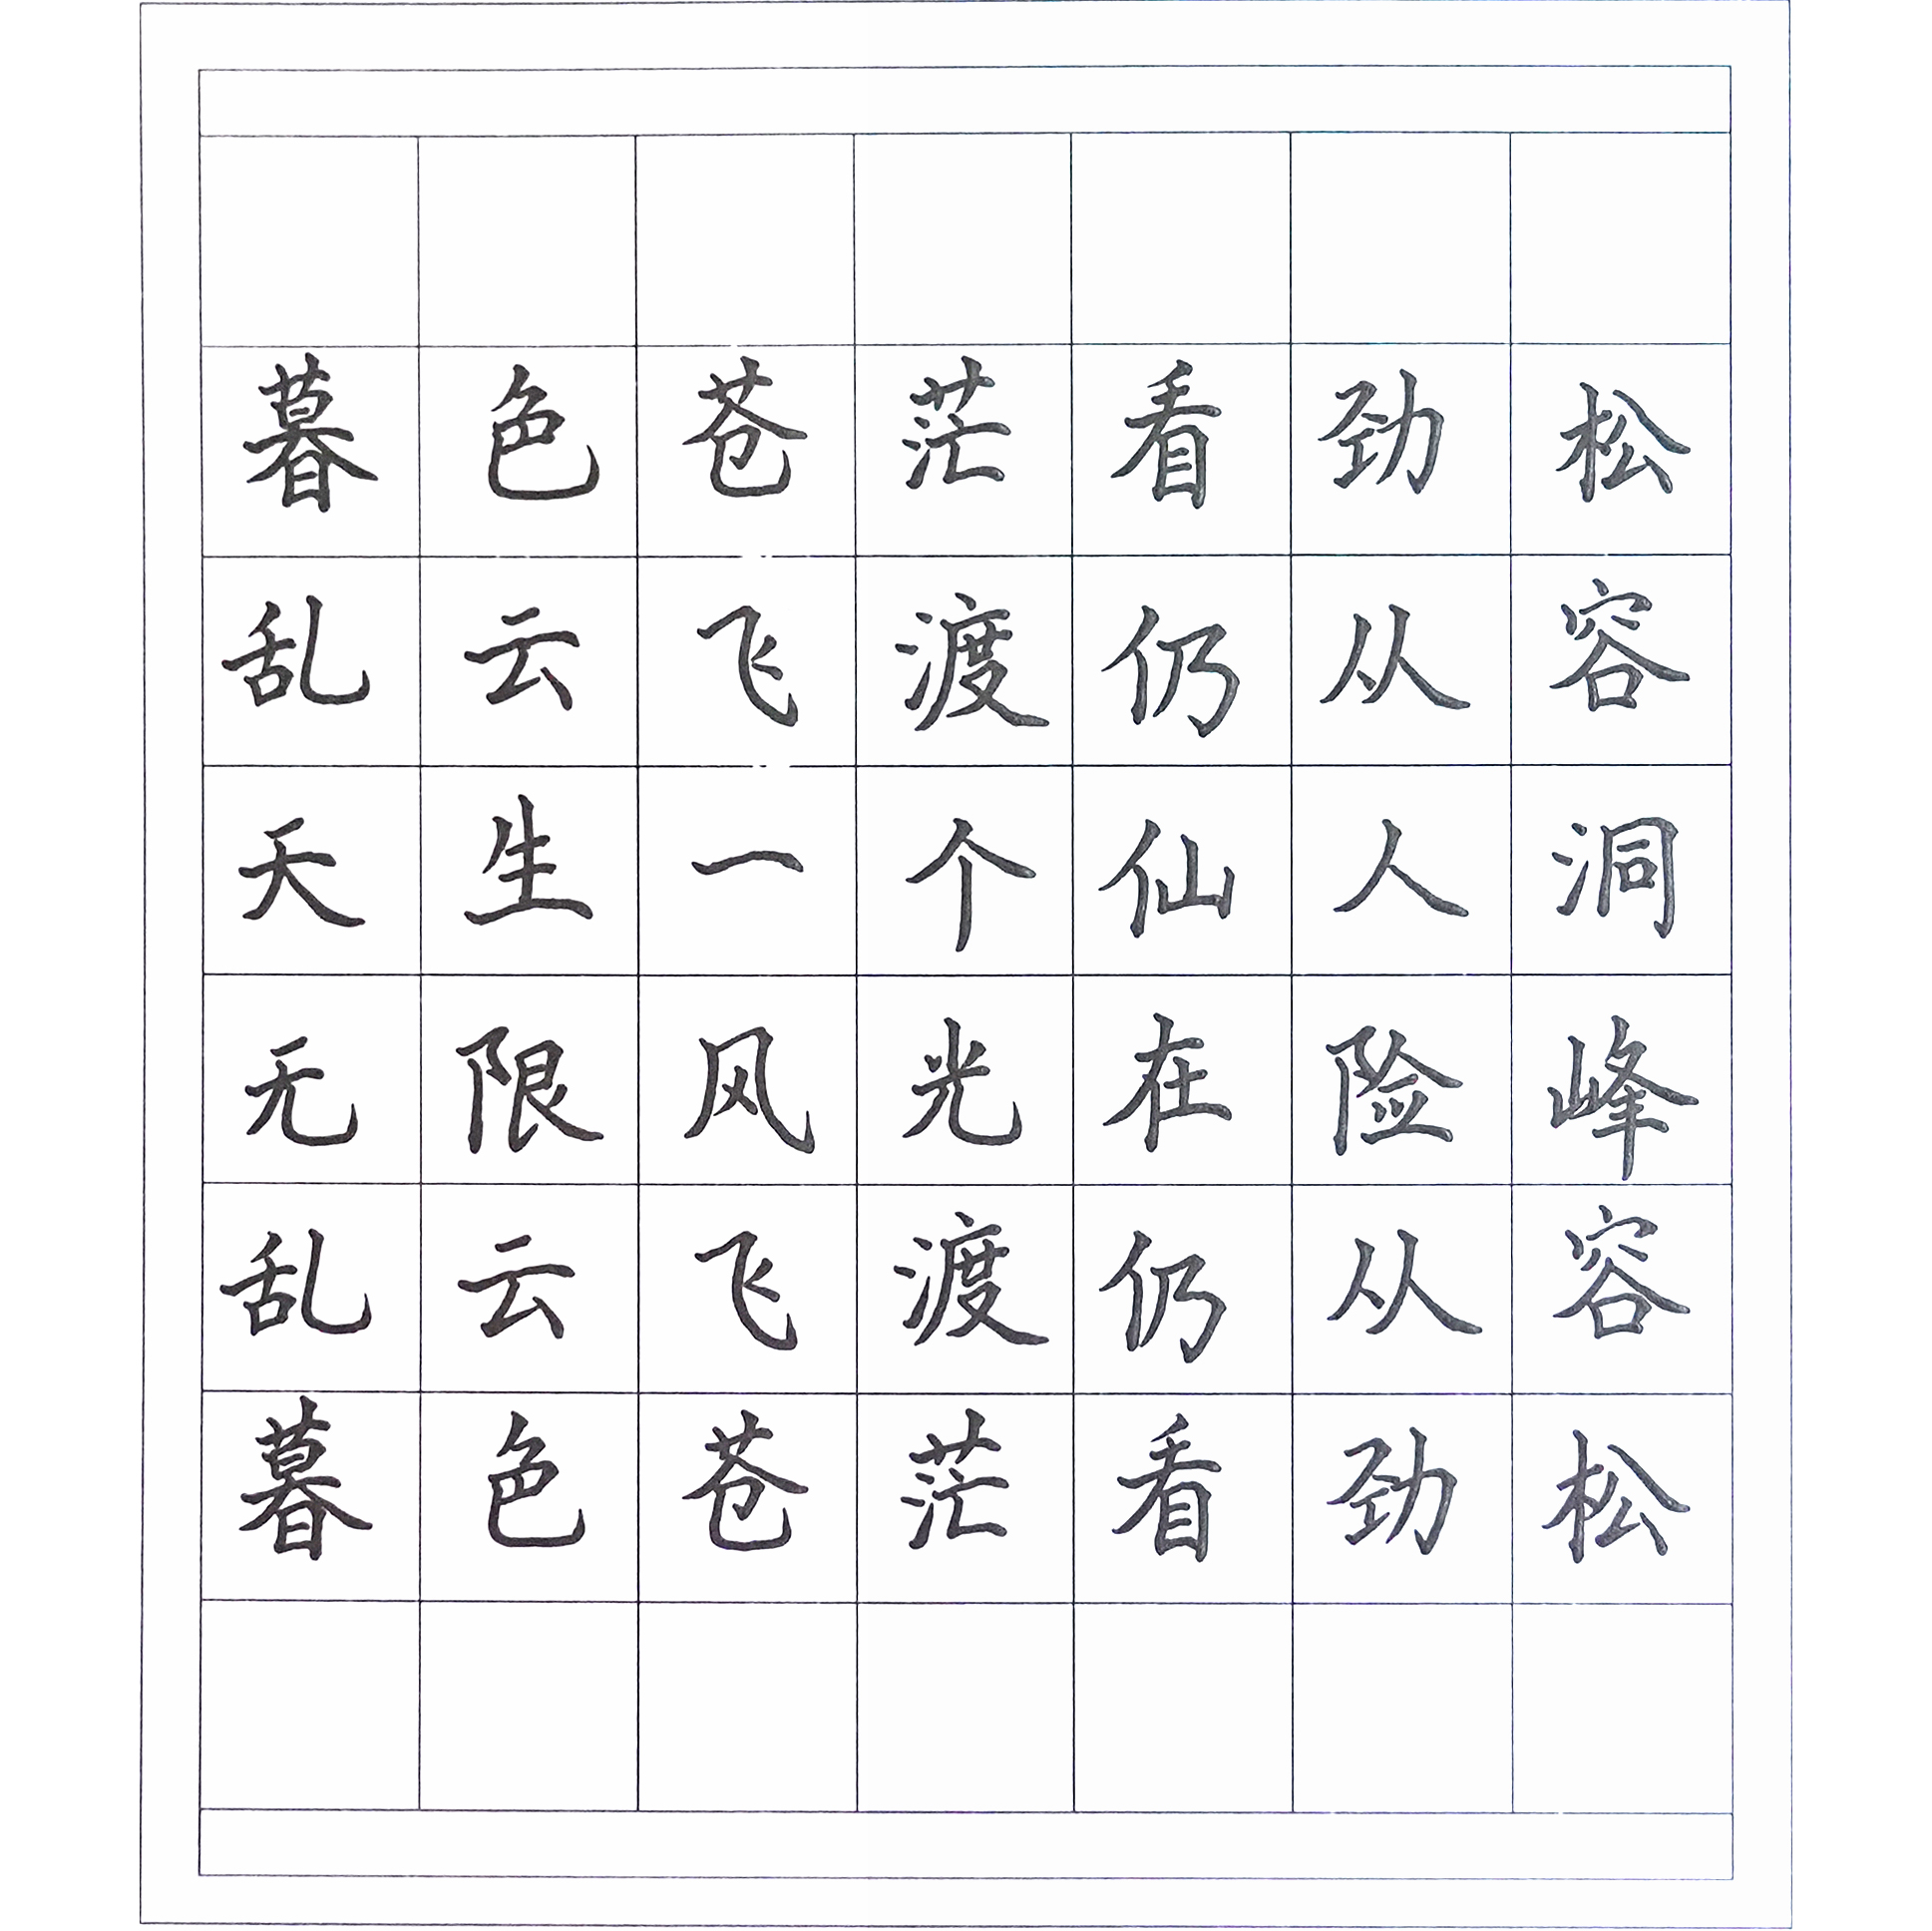 暮色苍茫看劲松
乱云飞渡仍从容
天生一个仙人洞
无限风光在险峰
乱云飞渡仍从容
暮色苍茫看劲松